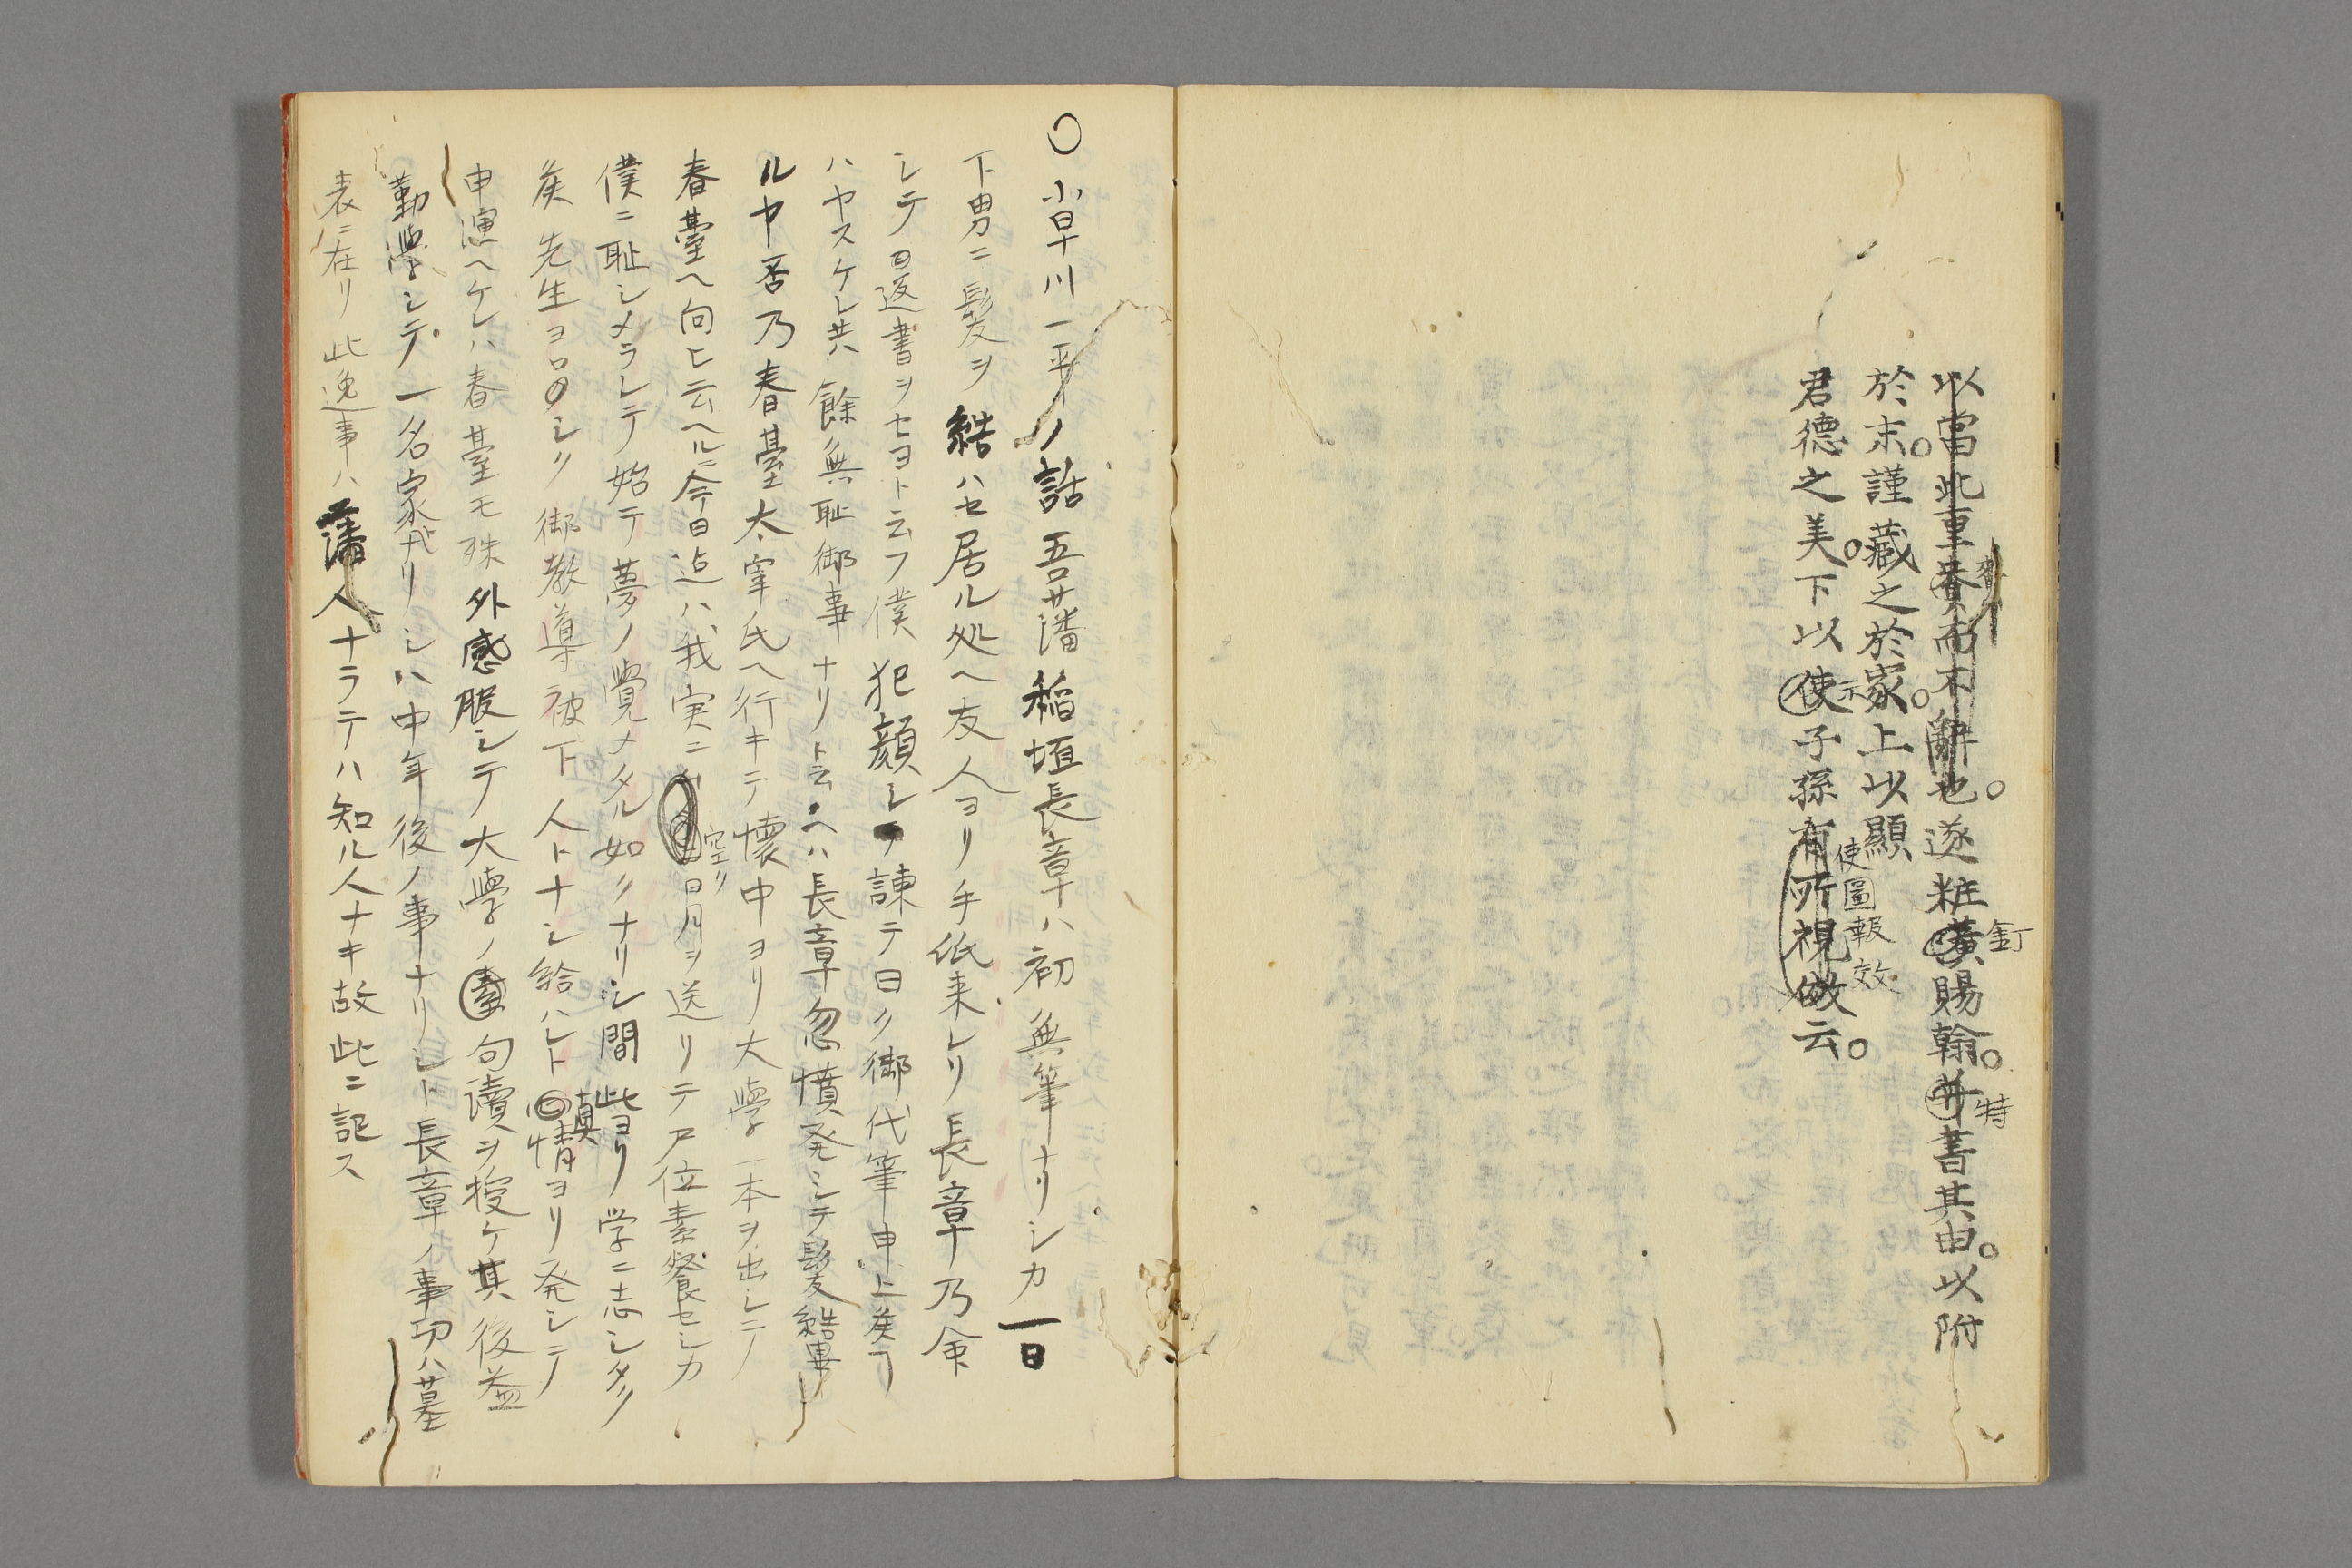 以當此重賚而不辭也。遂粧潢賜翰。并書其由。以附
賚
釘
特
於末。謹藏之於家。上以顯
君德之美。下以使子孫有所視傚云。
示
使圖報效
〇小早川一平ノ話吾藩稲垣長章ハ初無筆ナリシカ一日
下男ニ髪ヲ結ハセ居ル処ヘ友人ヨリ手紙来レリ長章乃
シテ曰返書ヲセヨト云フ僕犯顔シテ諫テ曰ク御代筆申上候フ
ハヤスケレ共餘無恥御事ナリト云ヘハ長章忽憤発シテ髪結畢
ルヤ否乃春臺太宰氏ヘ行キテ懐中ヨリ大學一本ヲ出シテ
春臺ヘ向ヒ云ヘルニ今日迠ハ我実ニ日月ヲ送リテ尸位素餐セシカ
空リ
僕ニ恥シメラレテ始テ夢ノ覺メタル如クナリシ間此ヨリ学ニ志シタク
候先生ヨロシク御教導被下人トナシ給ハレト情ヨリ発シテ
真
申演ヘケレハ春臺モ殊外感服シテ大學ノ素句讀ヲ授ケ其後益
勤學シテ一名家ナリシハ中年後ノ事ナリシト長章ノ事功ハ墓
表ニ在リ此逸事ハ藩人ナラテハ知ル人ナキ故此ニ記ス